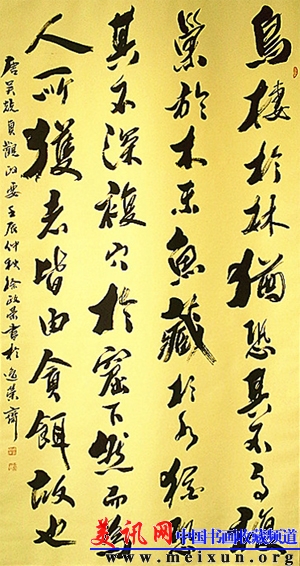 鳥棲於林猶恐其不高複
巢於木末魚藏於水猶恐
其不深複穴於窟下然而為
人所獲者皆由貪餌故也
唐吴兢貞觀政要壬辰仲秋徐政榮書於逸荣齋
美讯网 中国书画收藏频道
http://www.meixun.org